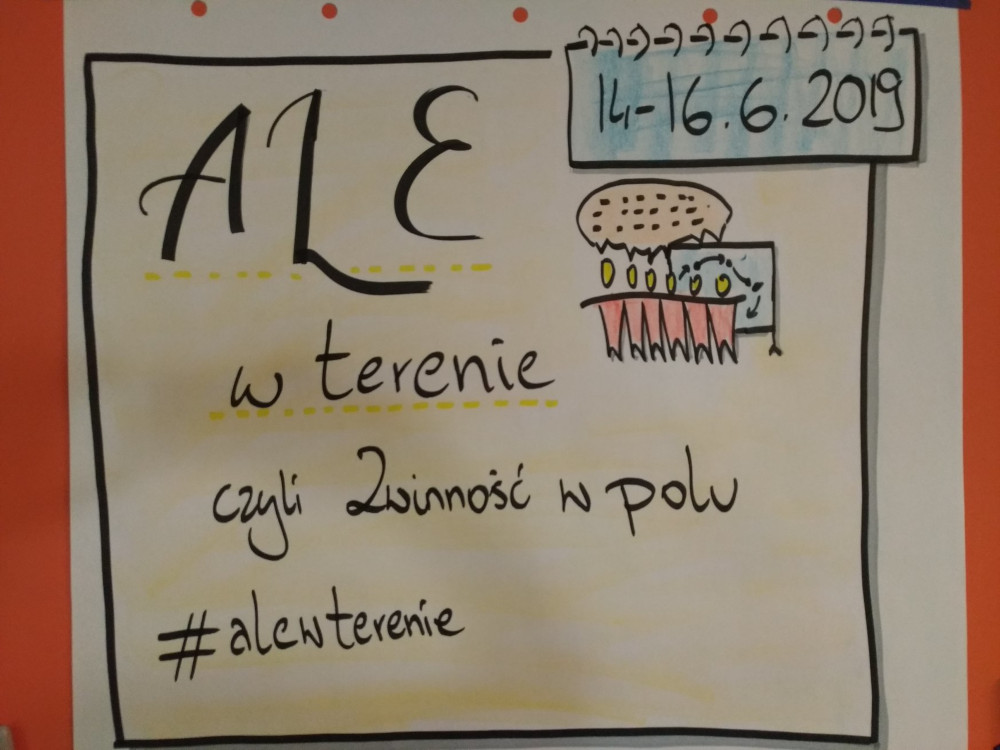 14-16.6.2019
ALE
w terenie
czyli Zwinność w polu
#alewterenie